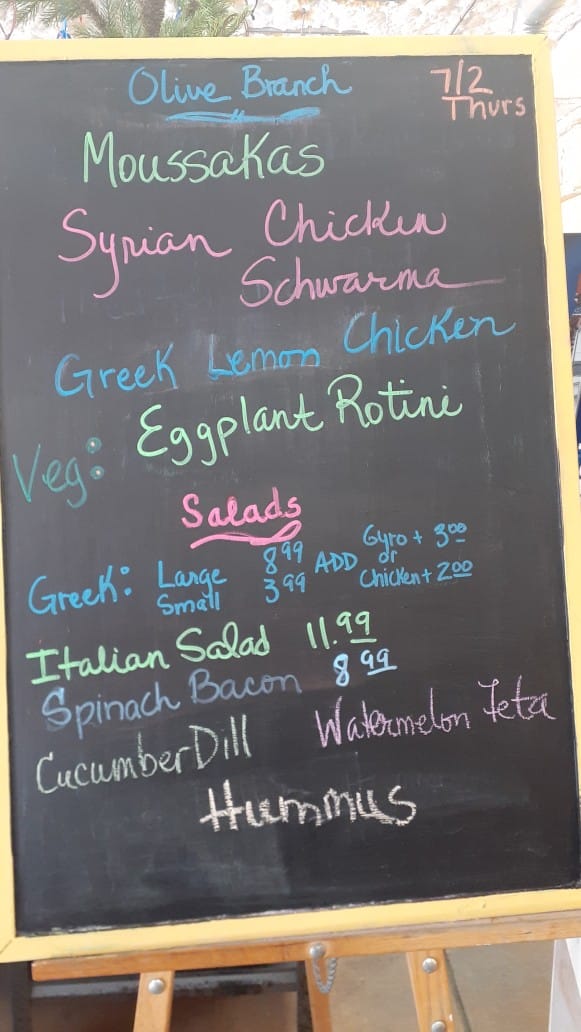 Olive Branch
7/2
Thurs
Moussakas
Syrian Chicken
Schwarma
Greek Lemon Chicken
Veg: Eggplant Rotini
Salads
Greek: Large 8 99 ADD Gyro + 3 00
or
Small 3 99 Chicken + 2 00
Italian Salad 11.99
Spinach Bacon 8 99
Cucumber Dill Watermelon Feta
Hummus